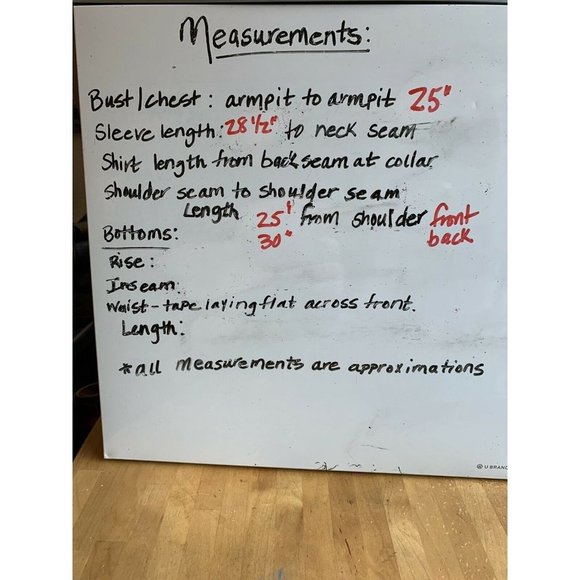 Measurements:
Bust/chest: armpit to armpit 25"
Sleeve length: 28 1/2" to neck seam
Shirt length from back seam at collar
Shoulder seam to shoulder seam
Length 25" from shoulder front
30" back
Bottoms:
Rise:
Inseam:
Waist - tape laying flat across front.
Length:
*all measurements are approximations
U BRAND